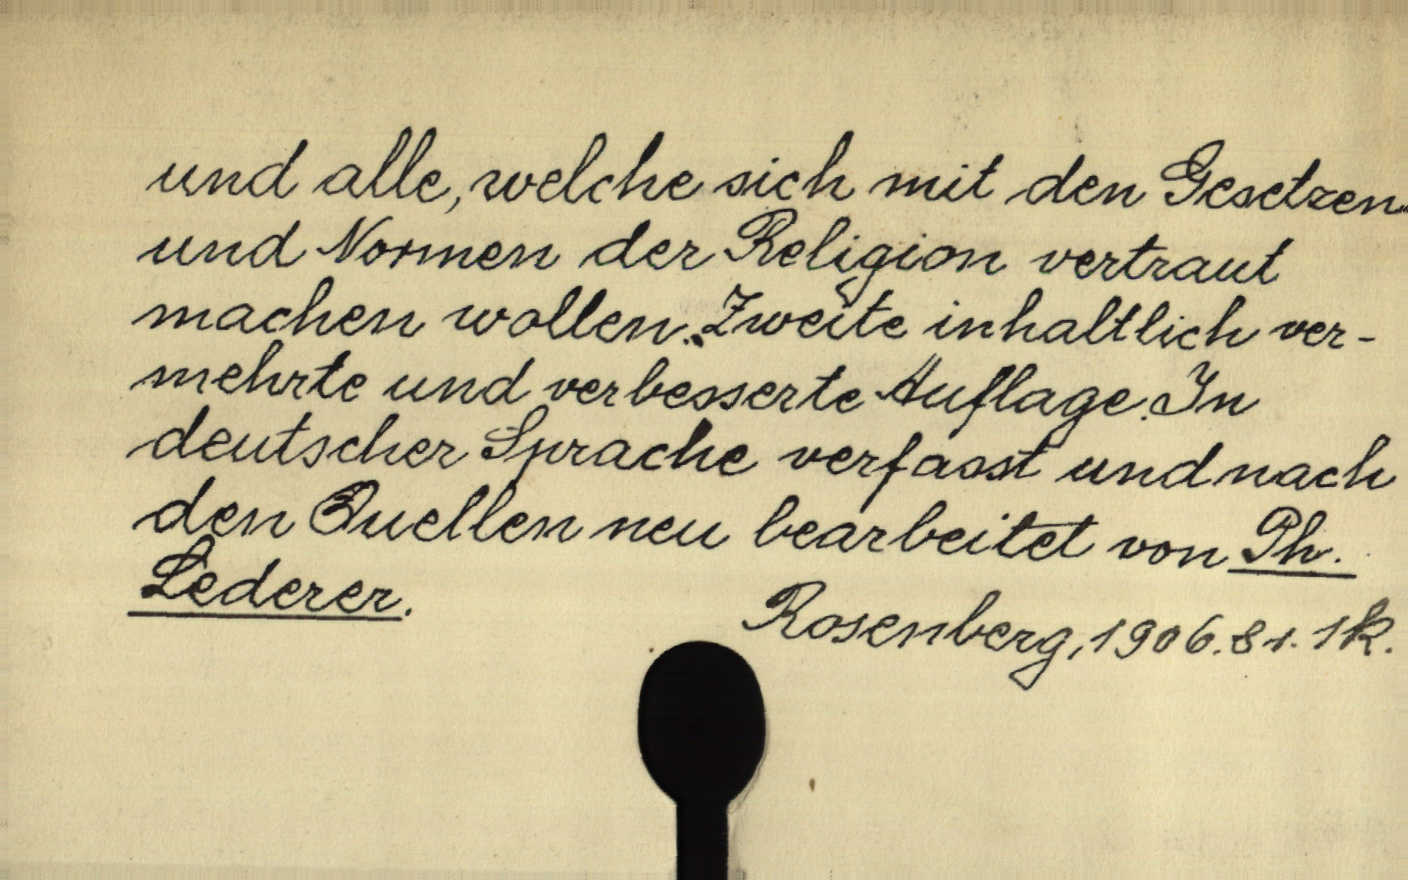 und alle, welche sich mit den Gesetzen
und Normen der Religion vertraut
machen wollen. Zweite inhaltlich ver-
mehrte und verbesserte Auflage. In
deutscher Sprache verfasst und nach
den Quellen neu bearbeitet von Ph.
Lederer.
Rosenberg, 1906. 8r. 1K.